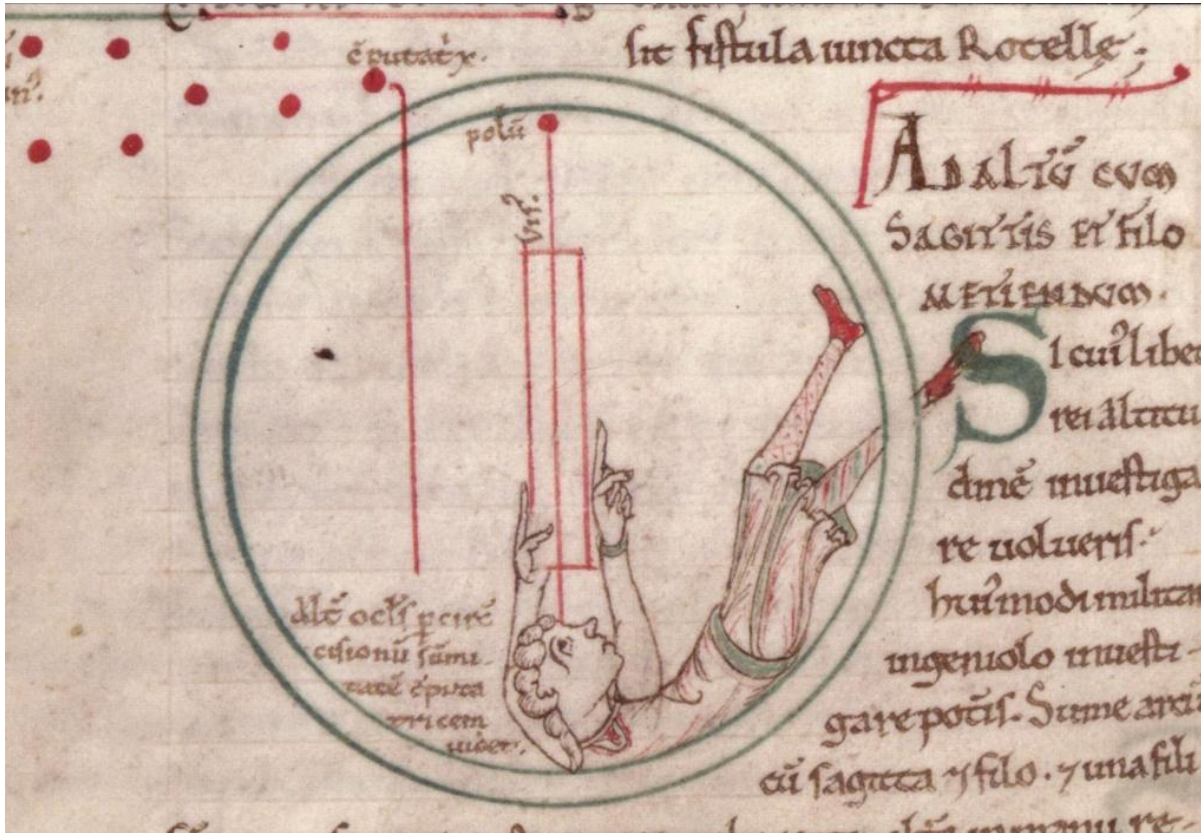 sit fistula iuncta Rotellę.
c̄putatͥx.
polū
uis᷒.
AD ALTŪ CVM
SAGITTIS ET FILO
METIENDVM.
Si cui᷒libet
rei altitu
dinē inuestiga
re uolueris.
hui᷒modi milita
ingeniolo inuesti-
gare potis̄. Sume arcū
cū sagitta ⁊ filo. ⁊ una fili
Alt̄ ocl̄s ꝑ circ̄
cisionū sūmi-
tatē c̄puta
tricem
uidet.